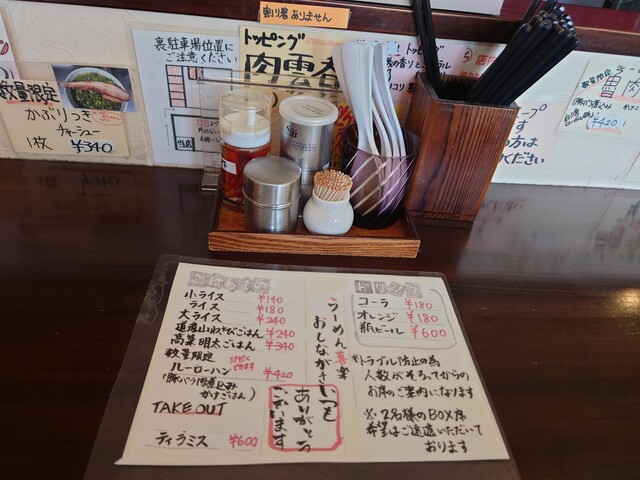 割り箸ありません
裏駐車場位置に
ご注意ください
当店
トッピング
肉雲呑
トッピング
数量限定
かぶりつき
チャーシュー
1枚 ¥340
¥420
ください
ごはんもの
小ライス ¥140
ライス ¥180
大ライス ¥240
道産山わさびごはん ¥240
高菜明太ごはん ¥340
数量限定
ルーローハン ¥420
(豚バラ肉煮込み
かけごはん)
TAKE OUT
ティラミス ¥600
らーめん喜楽
おしながき
いつも
ありがとう
ございます
ドリンク
コーラ ¥180
オレンジ ¥180
瓶ビール ¥600
※トラブル防止の為
人数がそろってからの
お席のご案内になります
※2名様のBOX席
希望はご遠慮いただいて
おります